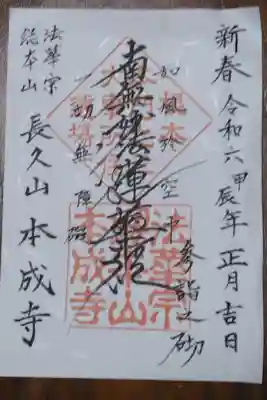 新春 令和六甲辰年 正月吉日
参詣之砌
如風於空中
南無妙法蓮華経
一切無障礙
法華宗
総本山
長久山 本成寺
法華宗
総本山
本成寺